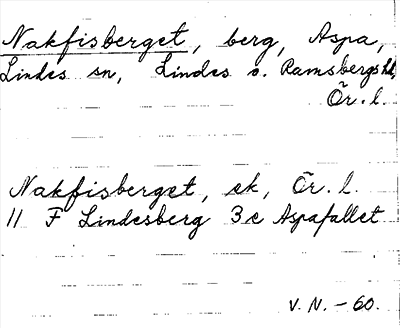 Nakfisberget, berg, Aspa,
Lindes sn, Lindes o. Ramsbergs hd,
Ör. l.
Nakfisberget, ek, Ör. l.
11 F Lindesberg 3 c Aspafallet
V. N. - 60.